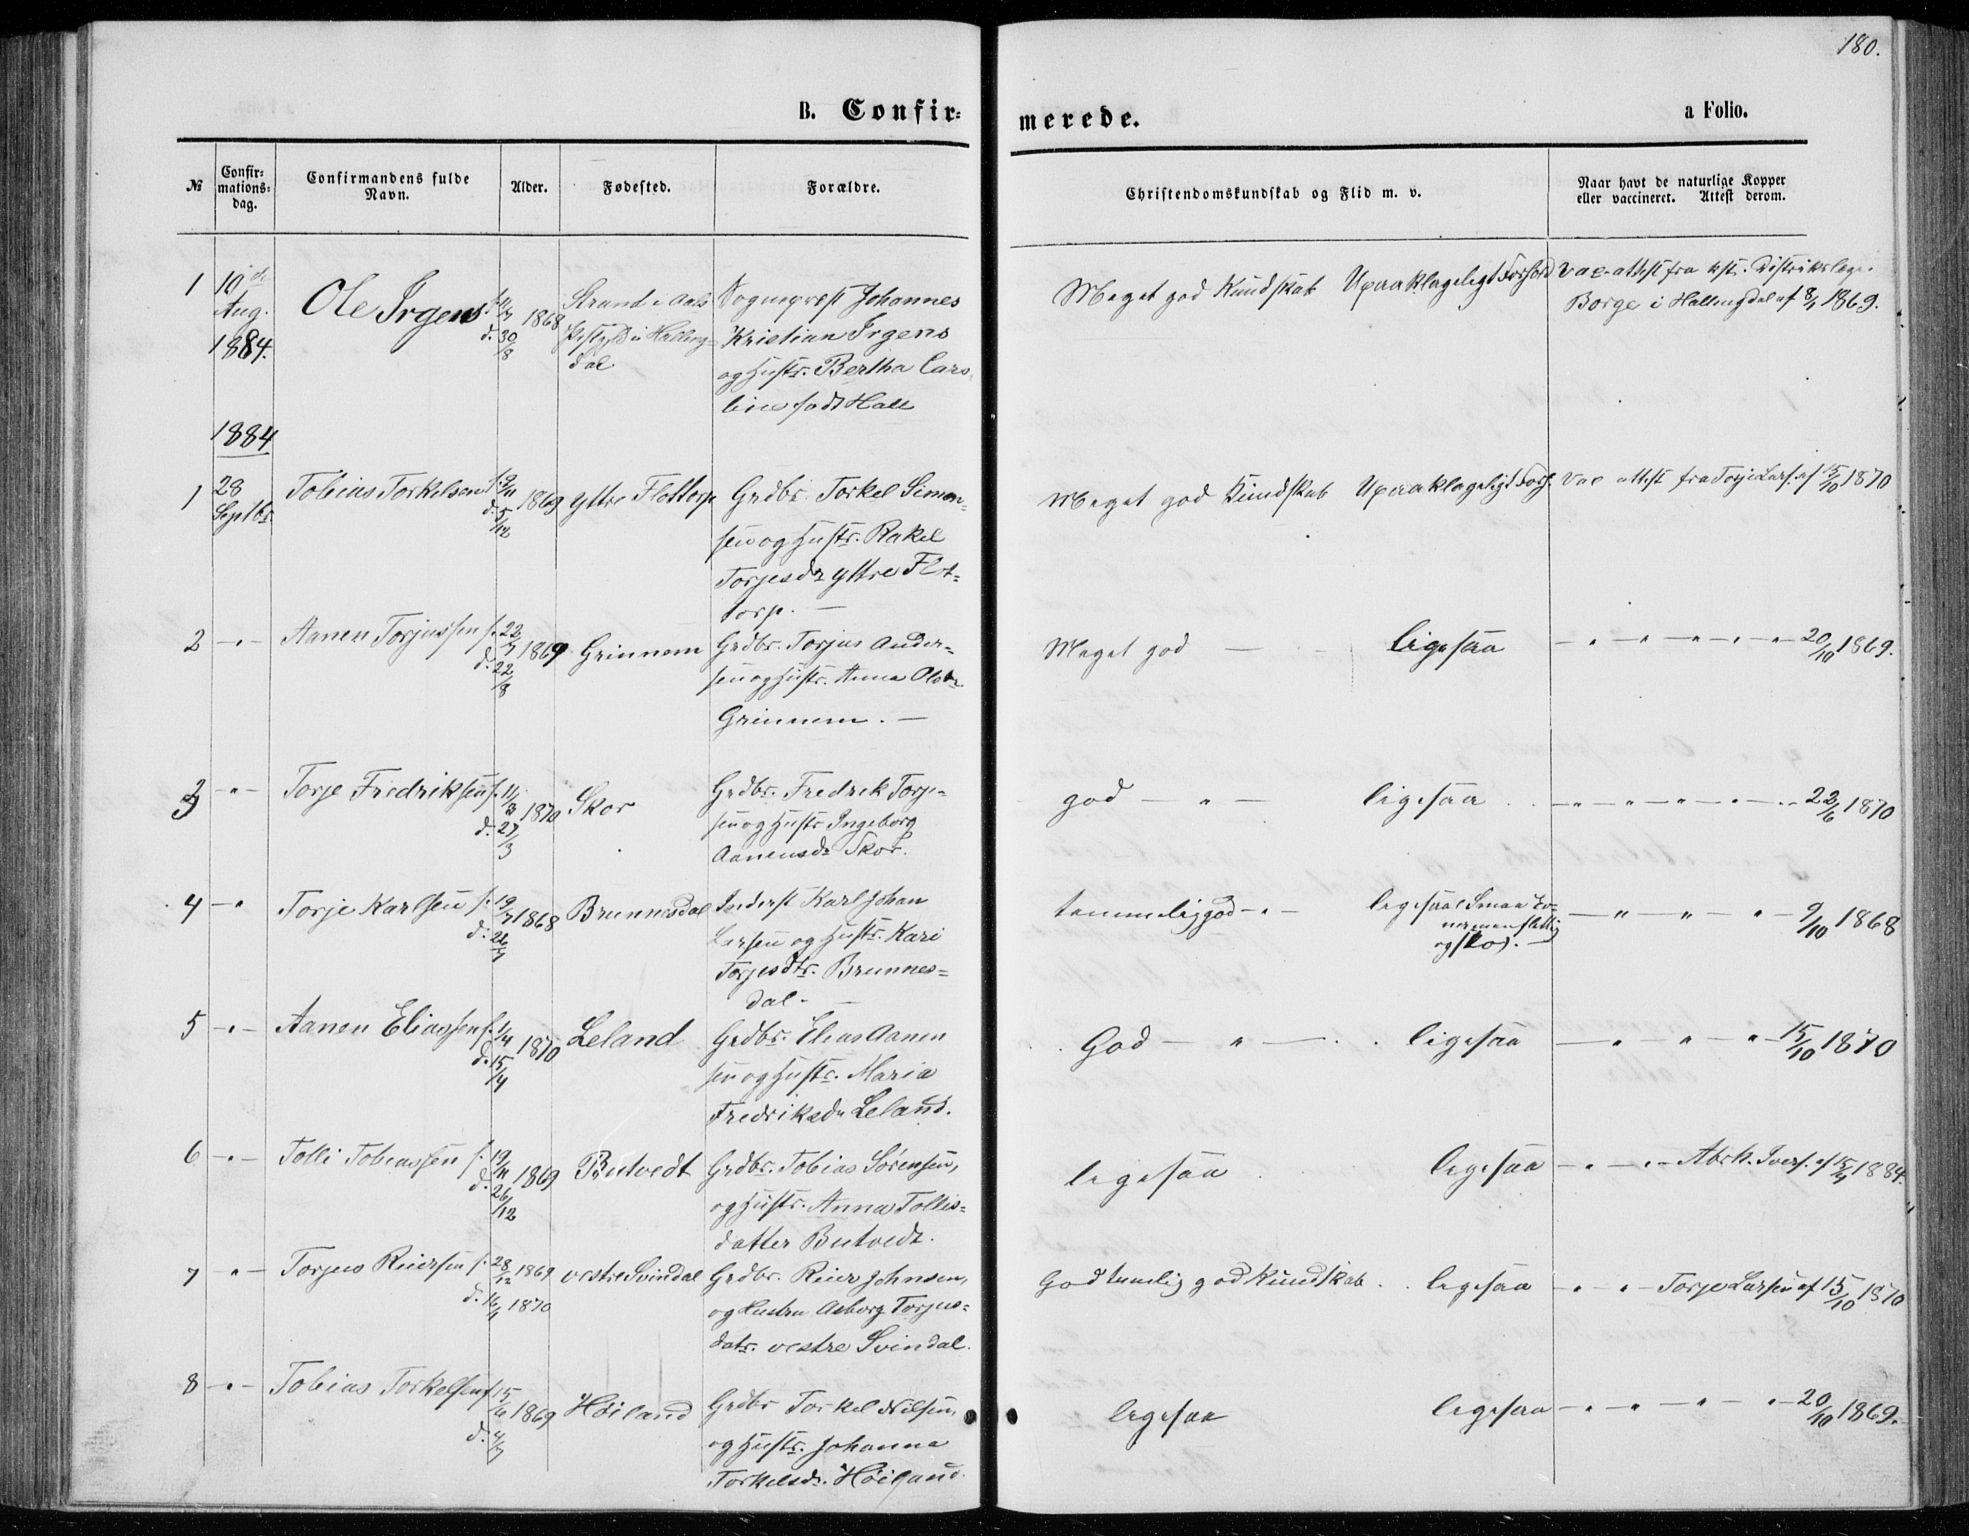 180.
B. Confir=
merede.
a Folio.
№
Confir=
mations=
dag.
Confirmandens fulde
Navn.
Alder.
Fødested.
Forældre.
Christendomskundskab og Flid m. v.
Naar havt de naturlige Kopper
eller vaccineret. Attest derom.
1
10de
Aug.
1884.
Ole Irgens
d. 30/8
1868
Strand i Aals
Præstgjld i Halling=
dal
Sogneprest Johannes
Kristian Irgens
og Hustr. Bertha Caro
line født Hall
Meget god Kundskab
Upaaklageligt Forhold
Vac. attest fra kst. Distriktslæge
Borge i Hallingdal af 1869.
1884
1
28
Septbr
Tobias Torkelsen
f. 9/11
d. 5/12
1869
Yttre Flottorp
Grdbr. Torkel Simon=
sen og Hustr. Rakel
Torjesdr yttre Flot=
torp. —
Meget god Kundskab
Upaaklageligt Forh.
Vac attest fra Torje Lars. af 15/10 1870
2
—"—
Aanen Torjussen
f. 22/7
d. 22/8
1869
Grinnem
Grdbr. Torjus Ander=
sen og Hustr. Anna Olsdr
Grinnem. —
Meget god —
ligesaa
— " — " — " — " — " 20/10 1869.
3
—"—
Torje Fredriksen
f. 11/3
d. 27/3
1870
Skor
Grdbr. Fredrik Torje=
sen og Hustr Ingeborg
Aanensdr Skor.
god — " —
ligesaa
— " — " — " — " — 22/6 1870
4
—"
Torje Karlsen
f. 19/7
d. 26/7
1868
Brunnesdal
Inderst Karl Johan
Larsen og Hustr. Kari
Torjesdtr. Brunnes=
dal. —
temmelig god — " —
ligesaa Smaa Ev=
ner men flittig
og skod. —
— " — " — " — 9/10 1868
5
—"—
Aanen Eliassen
f. 1/4
d. 15/4
1870
Leland
Grdbr. Elias Aanen
sen og Hustr. Maria
Fredriksdr Leland.
God — " —
ligesaa
— " — " — " — 15/10 1870
6
—"—
Tolli Tobiassen
f. 19/11
d. 26/12
1869
Butvedt
Grdbr. Tobias Sørensen,
og Hustr. Anna Tollis=
datter Butvedt.
ligesaa
ligesaa
— " — " — Abrh. Ivers. af 1884.
7
"—
Torjus Reiersen
f. 28/12 1869
d. 16/1 1870
vestre Svindal
Grdbr. Reier Johnsen,
og Hustru Asborg Torjus=
datr. vestre Svindal.
God temlig god Kundskab
ligesaa
— " — " — Torje Larsen af 15/10 1870
8
—"—
Tobias Torkelsen
f. 15/6
d. 4/7
1869
Høiland
Grdbr Torkel Nilsen,
og Hustr. Johanna
Torkelsdr. Høiland.
ligesaa
ligesaa
— " — " — " — " — 20/10 1869.